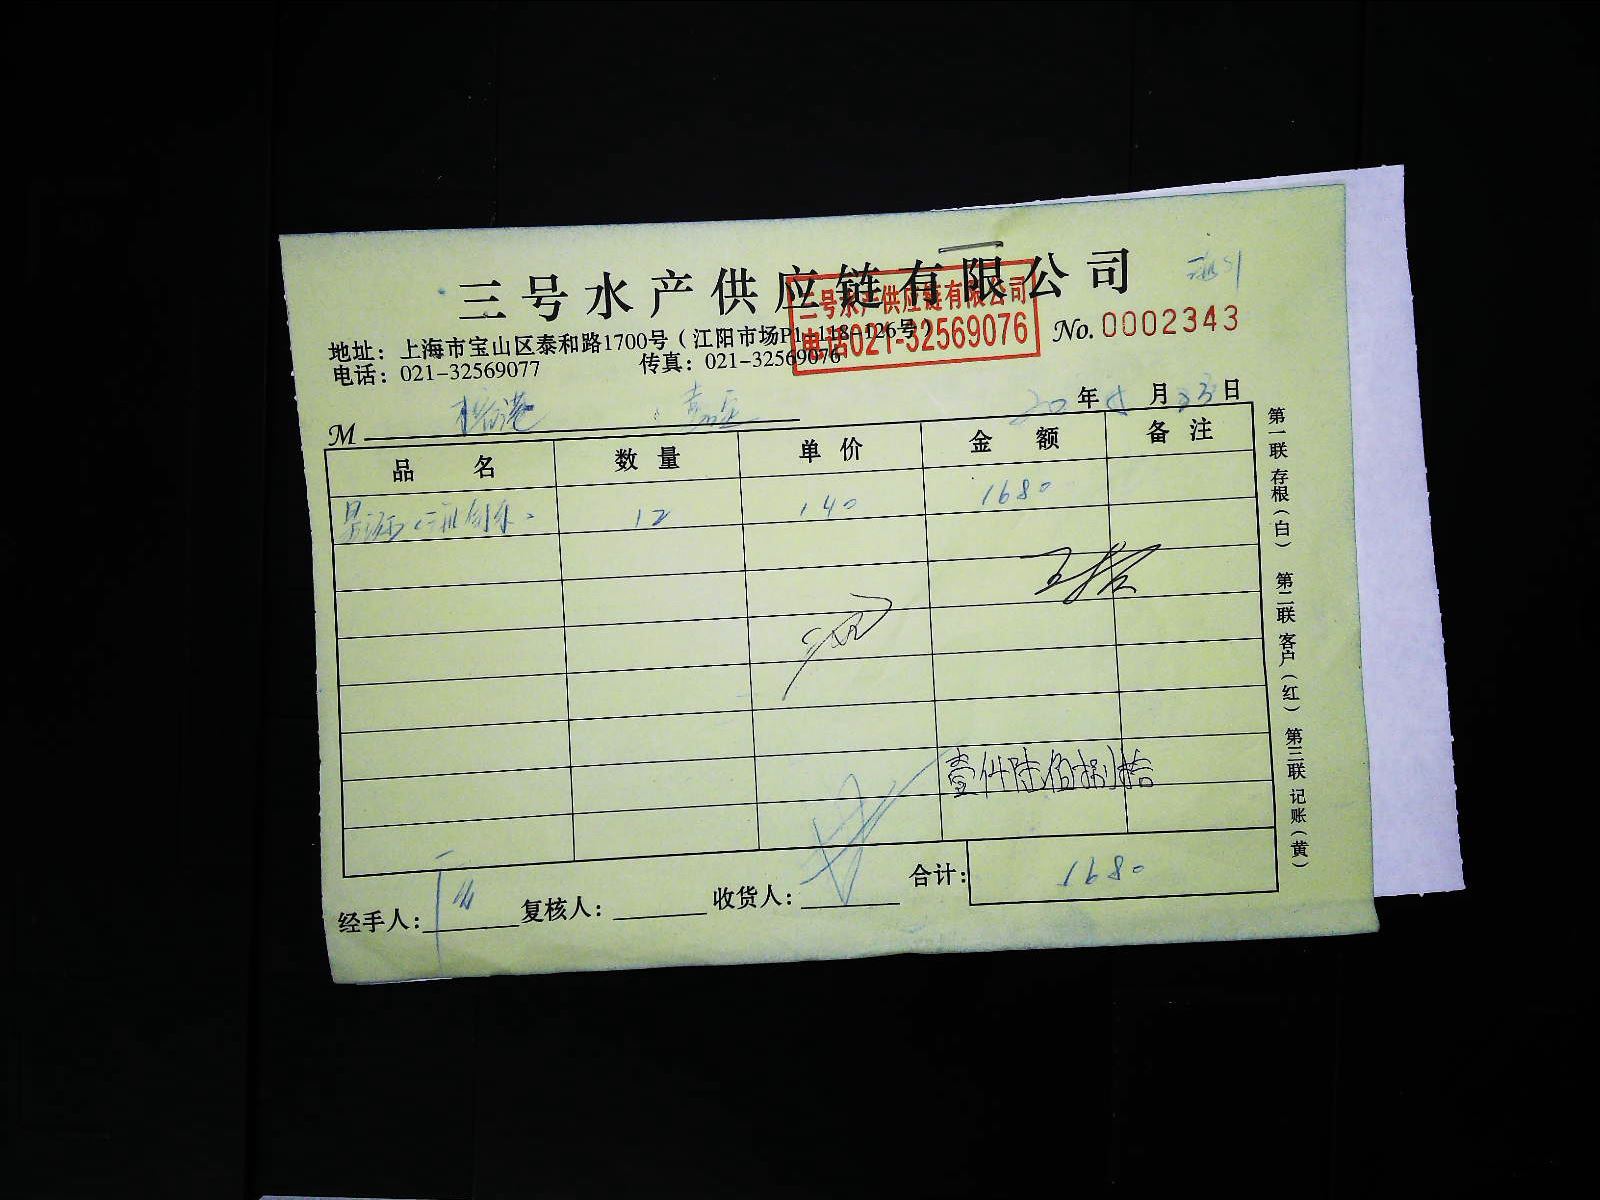 三号水产供应链有限公司
三号水产供应链有限公司
电话021-32569076
No.0002343
地址：上海市宝山区泰和路1700号（江阳市场P1-118-126号）
电话：021-32569077 传真：021-32569076
M
20年 月 23日
品名 数量 单价 金额 备注
12 140 1680
壹仟陆佰捌拾
合计：1680
经手人： 复核人： 收货人：
第一联 存根（白） 第二联 客户（红） 第三联 记账（黄）